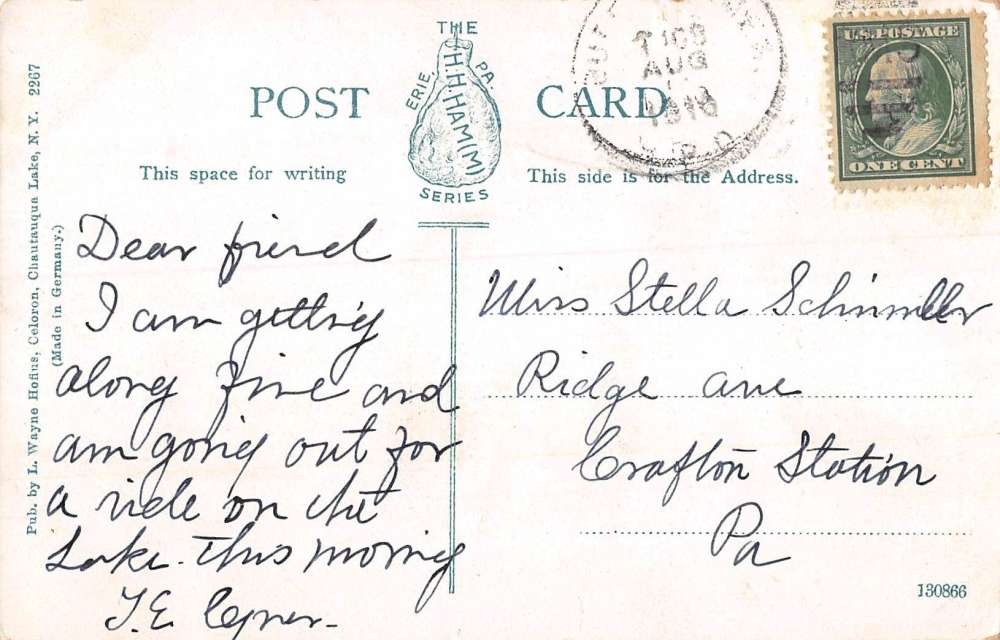 THE
H.H. HAMIMI
ERIE PA.
SERIES
POST CARD
This space for writing
This side is for the Address.
U.S. POSTAGE
ONE CENT
AUG
1910
R.P.O.
Pub. by L. Wayne Hofius, Celoron, Chautauqua Lake, N. Y. 2267
(Made in Germany.)
Dear friend
I am getting
along fine and
am going out for
a ride on the
Lake. this morning
Miss Stella
Ridge ave
Crafton Station
Pa
130866